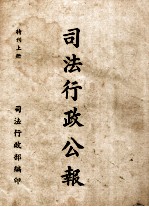 司法行政公報
特刊上冊
司法行政部編印